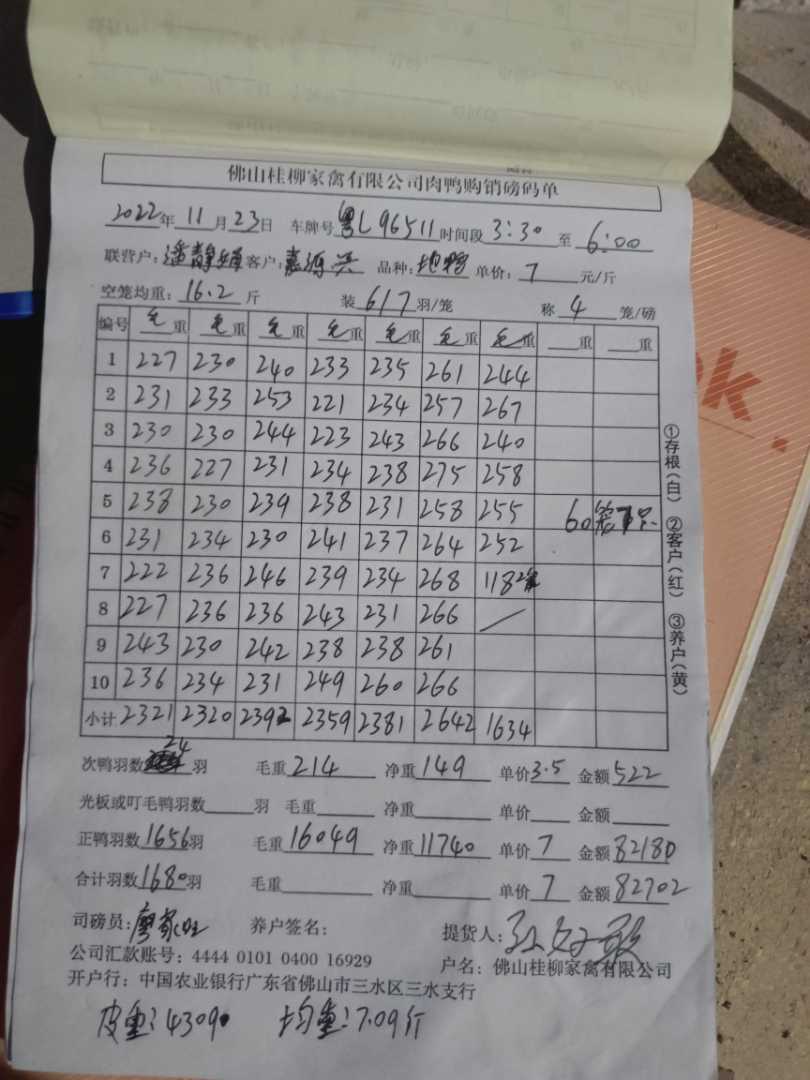 佛山桂柳家禽有限公司肉鸭购销磅码单
2022年 11月 23日 车牌号 粤L96511 时间段 3:30 至 6:00
联营户: 潘静娟 客户: 嘉源兴 品种: 地鸭 单价: 7 元/斤
空笼均重: 16.2 斤 装 6/7 羽/笼 称 4 笼/磅
编号 毛重 毛重 毛重 毛重 毛重 毛重 毛重 重 重
1 227 230 240 233 235 261 244
2 231 233 253 221 234 257 267
3 230 230 244 223 243 266 240
4 236 227 231 234 238 275 258
5 238 230 239 238 231 258 255 60笼
6 231 234 230 241 237 264 252
7 222 236 246 239 234 268 118
8 227 236 236 243 231 266 /
9 243 230 242 238 238 261
10 236 234 231 249 260 266
小计 2321 2320 2392 2359 2381 2642 1634
①存根(白) ②客户(红) ③养户(黄)
次鸭羽数 24 羽 毛重 214 净重 149 单价 3.5 金额 522
光板或叮毛鸭羽数 羽 毛重 净重 单价 金额
正鸭羽数 1656 羽 毛重 16049 净重 11740 单价 7 金额 82180
合计羽数 1680 羽 毛重 净重 单价 7 金额 82702
司磅员: 廖家旺 养户签名: 提货人:
公司汇款账号: 4444 0101 0400 16929 户名: 佛山桂柳家禽有限公司
开户行: 中国农业银行广东省佛山市三水区三水支行
皮重: 4309 均重: 7.09斤